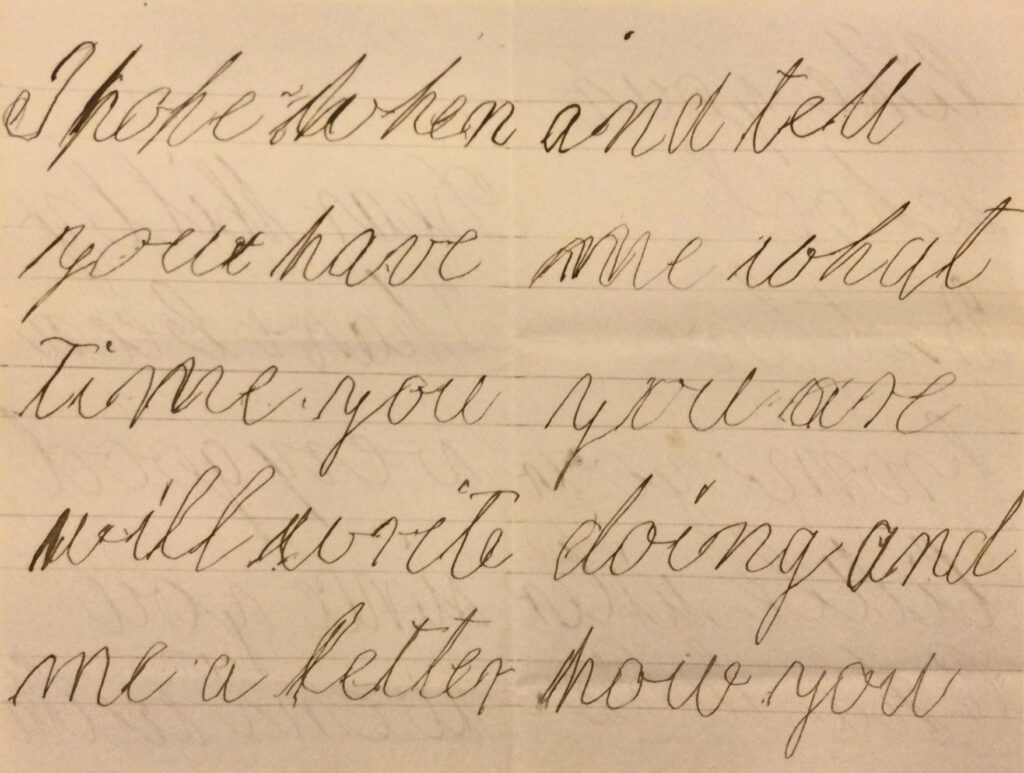 I hope when
you have
time you
will write
me a letter
and tell
me what
you are
doing and
how you